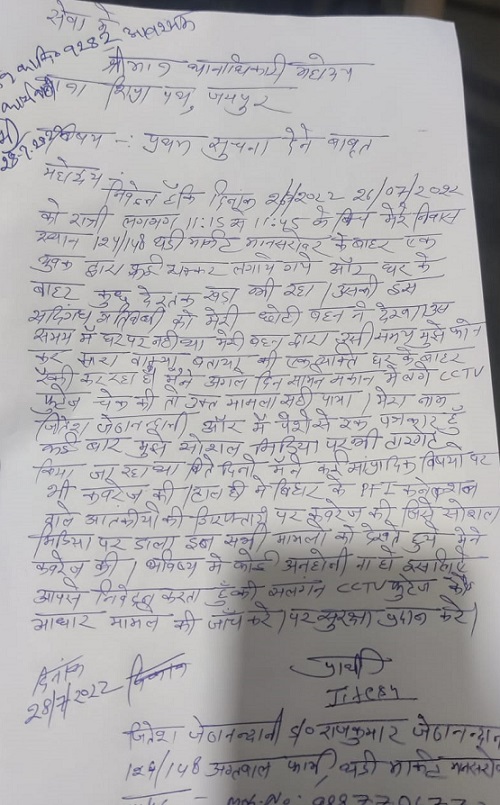 सेवा में
श्रीमान थानाधिकारी महोदय
थाना शिप्रा पथ, जयपुर
विषय :- प्रथम सुचना देने बाबत
महोदय,
निवेदन है कि दिनांक 26/07/2022
को रात्री लगभग 11:15 से 11:45 के बिच मेरे निवास
स्थान 124/148 थडी मार्केट मानसरोवर के बाहर एक
युवक द्वारा कई चक्कर लगाये गये और घर के
बाहर कुछ देर तक खडा भी रहा। उसकी इस
संदिग्ध गतिविधी को मेरी छोटी बहन ने देखा। उस
समय में घर पर नही था मेरी बहन द्वारा उसी समय मुझे फोन
कर सारा वाक्या बताया की एक व्यक्ति घर के बाहर
रैकी कर रहा है मैंने अगले दिन सामने मकान में लगे CCTV
फुटेज चेक की तो उक्त मामला सही पाया। मेरा नाम
जितेश जेठानन्दानी और में पेशे से एक पत्रकार हूँ
कई बार मुझे सोशल मिडिया पर भी टारगेट
किया जा रहा था बिते दिनो मैंने कई सांप्रदायिक विषयो पर
भी कवरेज की। हाल ही में बिहार के PFI कनेक्शन
वाले आतंकीयो की गिरफ्तारी पर कवरेज की जिसे सोशल
मिडिया पर डाला इन सभी मामलो को देखते हुये मैंने
कवरेज की। भविष्य में कोई अनहोनी ना हो इसलिये
आपसे निवेदन करता हुँ की सलंगन CCTV फुटेज के
आधार मामले की जाँच करे। पर सुरक्षा प्रदान करे।
दिनांक
28/7/2022
प्रार्थी
Jitesh
जितेश जेठानन्दानी S/o राजकुमार जेठानन्दानी
124/148 अग्रवाल फार्म, थडी मार्केट मानसरोवर